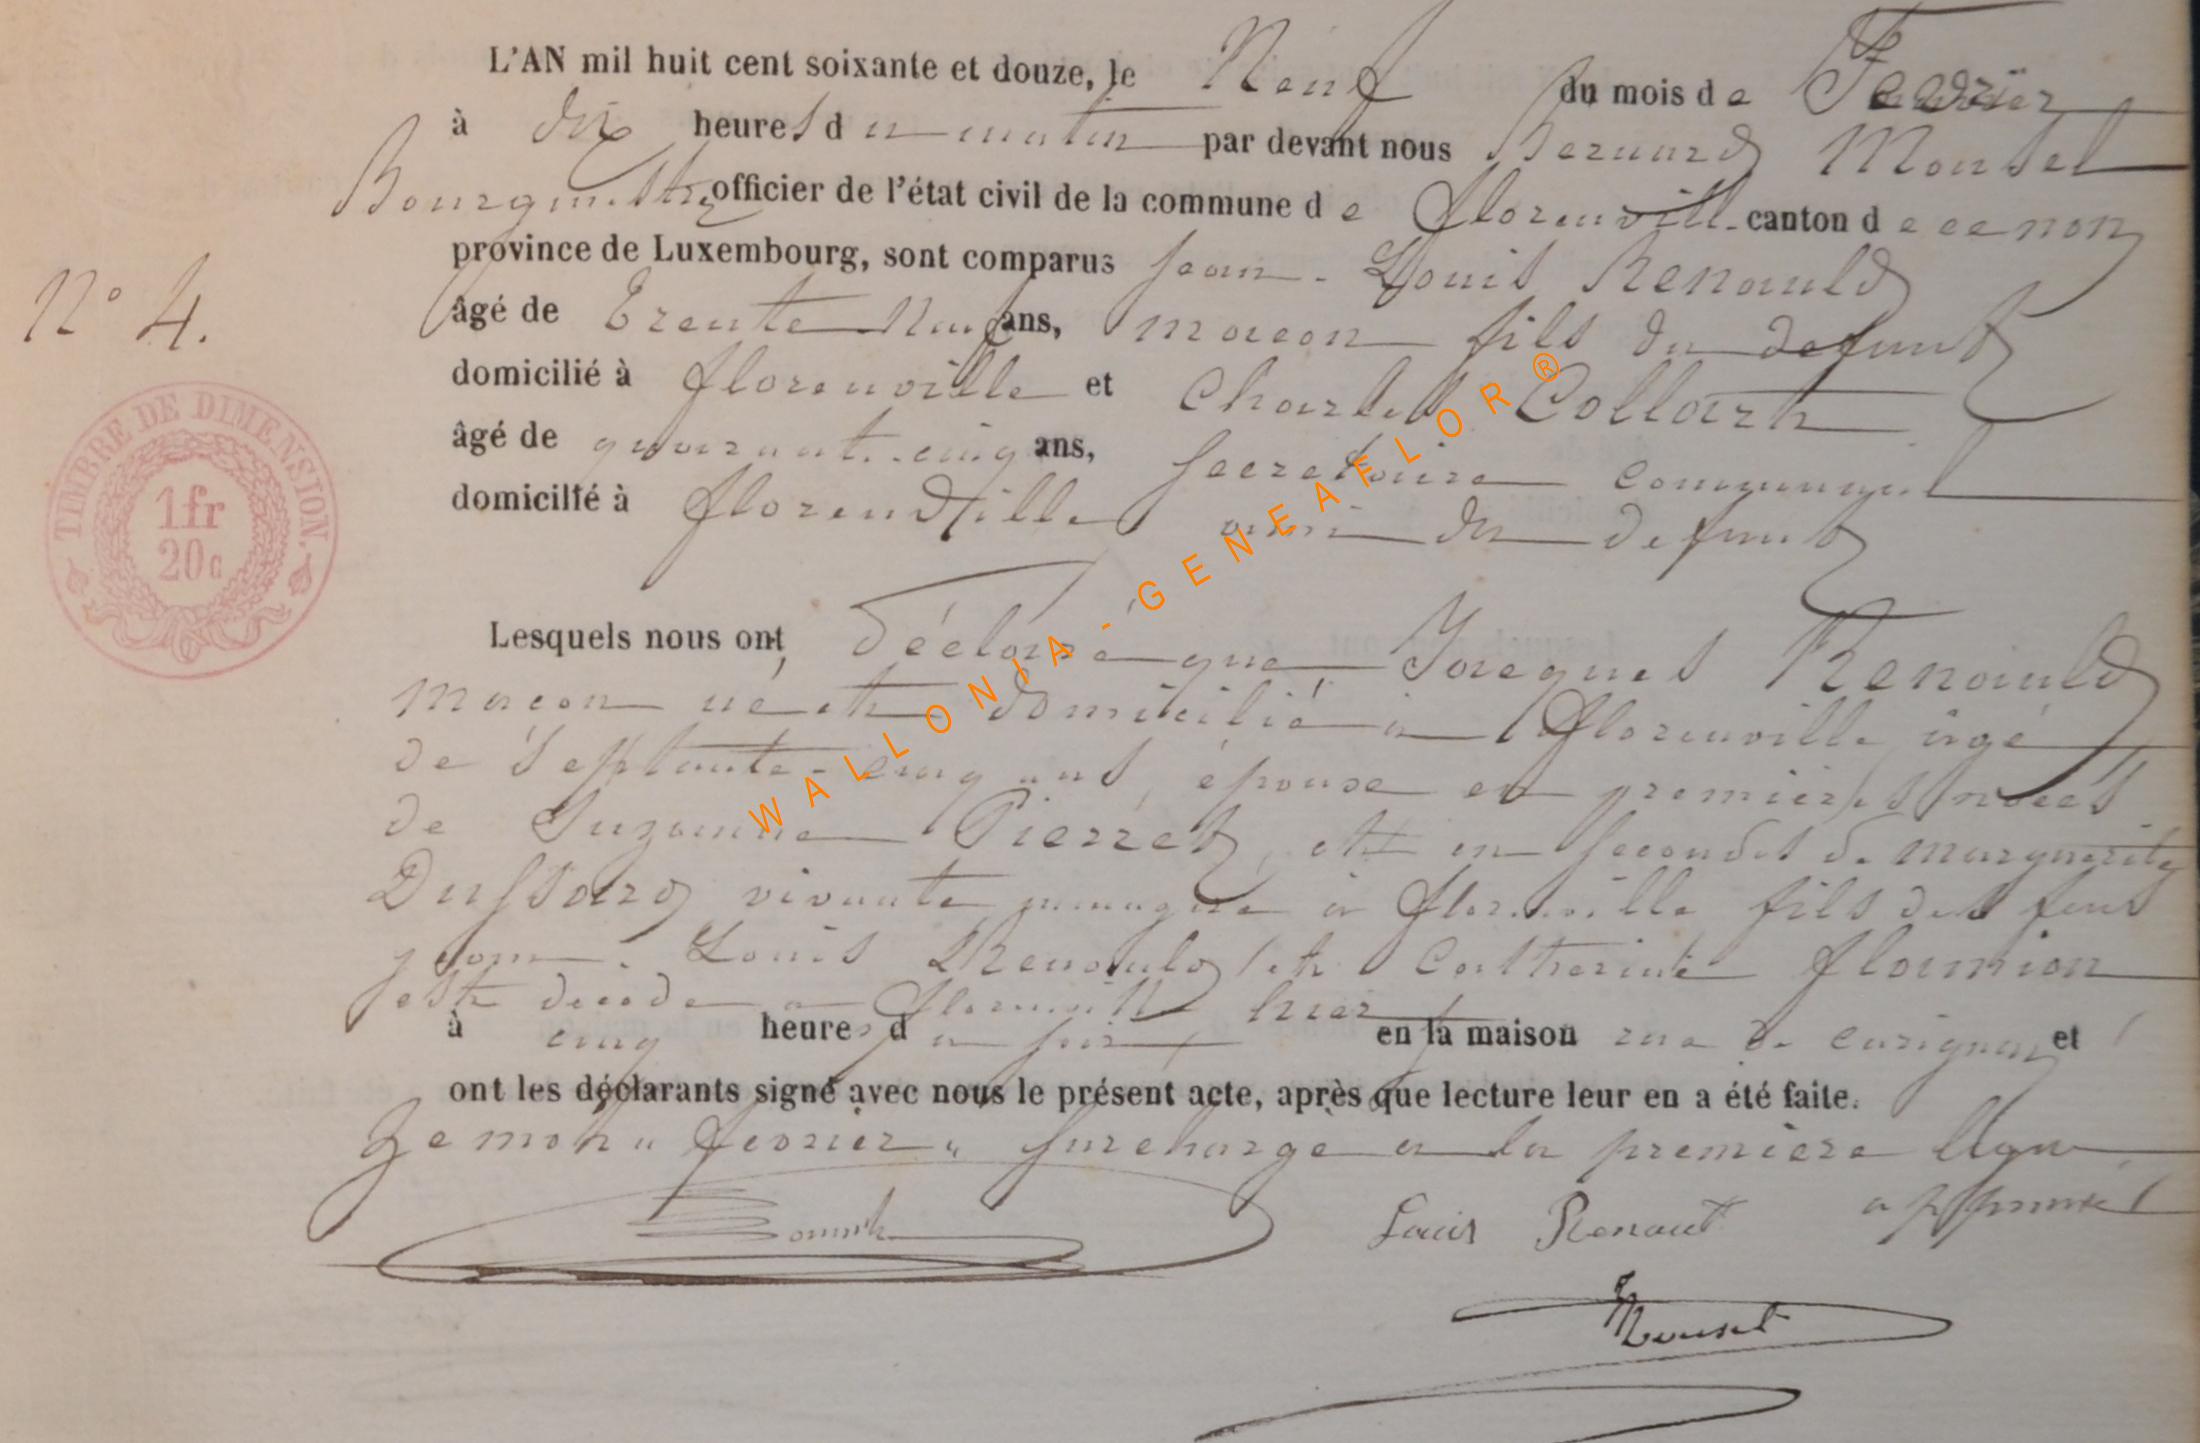 L'AN mil huit cent soixante et douze, le Neuf du mois de Fevrier
à dix heures du matin par devant nous Bernard Mousel
Bourgmestre officier de l'état civil de la commune de florenville canton de ce nom
province de Luxembourg, sont comparus Jean-Louis Renauld
N° 4.
âgé de Trente Neuf ans, macon fils du defunt
domicilié à florenville et Charles Collart
âgé de quarante-cinq ans, Secretaire Communal
domicilié à florenville ami du defunt
TIMBRE DE DIMENSION.
1 fr
20 c
Lesquels nous ont déclaré que Jacques Renauld
macon né et domicilié à florenville âgé
de Septante-cinq ans, épouse en premières noces
de Suzanne Pierret, et en secondes de marguerite
Dussard vivante menagère à florenville fils des feus
Louis Renauld et Catherine flamion
est décédé a florenville hier
à cinq heures du soir en la maison rue de carignan et
ont les déclarants signé avec nous le présent acte, après que lecture leur en a été faite.
Le mot "fevrier" surcharge a la première ligne
approuvé
Louis Renault
Mousel
WALLONIA-GENEAFLOR®